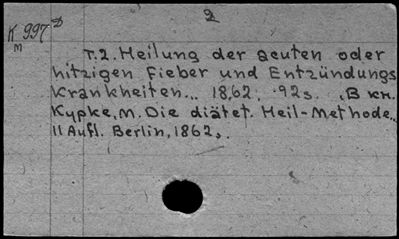 2
K 997 D
M
T.2. Heilung der acuten oder
hitzigen Fieber und Entzündungs
Krankheiten... 1862, 92s. , B кн.
Kypke, M. Die diätet. Heil-Methode..
11 Aufl. Berlin, 1862,.